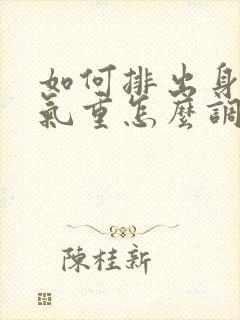 如何排出身
氣重怎麼調
陳桂新